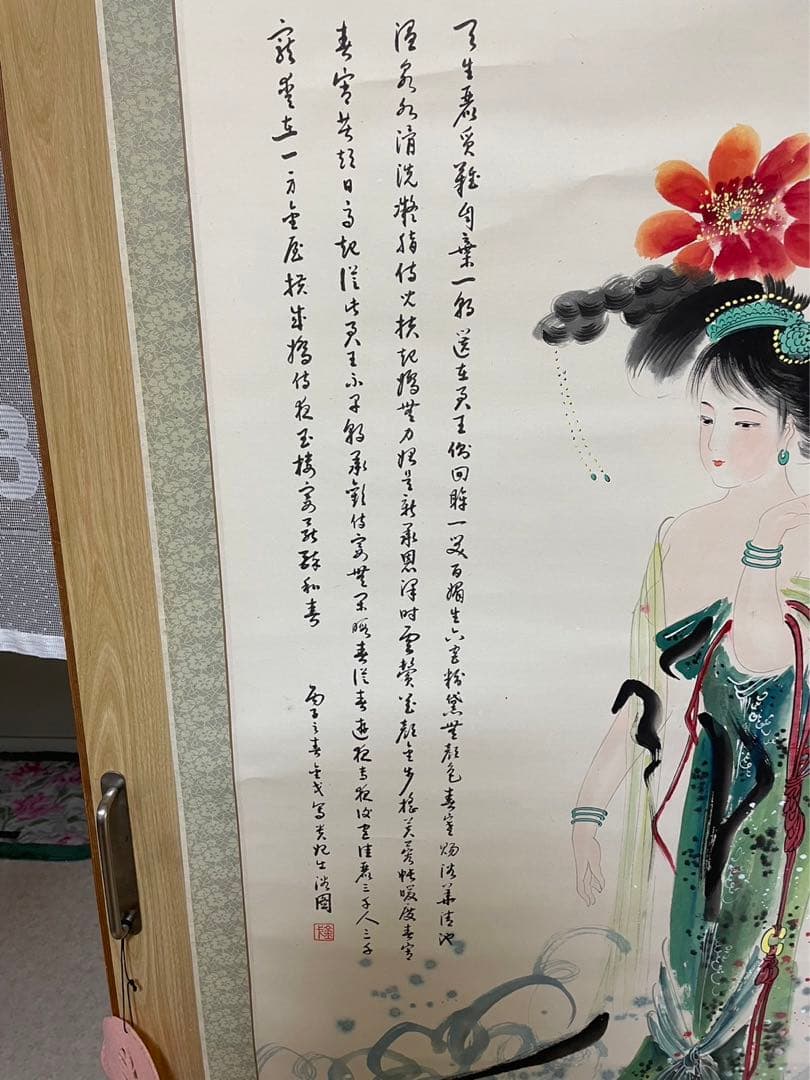 天生麗質難自棄一朝選在君王側回眸一笑百媚生六宮粉黛無顏色春寒賜浴華清池
溫泉水滑洗凝脂侍兒扶起嬌無力始是新承恩澤時雲鬢花顏金步搖芙蓉帳暖度春宵
春宵苦短日高起從此君王不早朝承歡侍宴無閑暇春從春遊夜專夜後宮佳麗三千人三千
寵愛在一身金屋妝成嬌侍夜玉樓宴罷醉和春
丙子之春金戈寫貴妃出浴圖